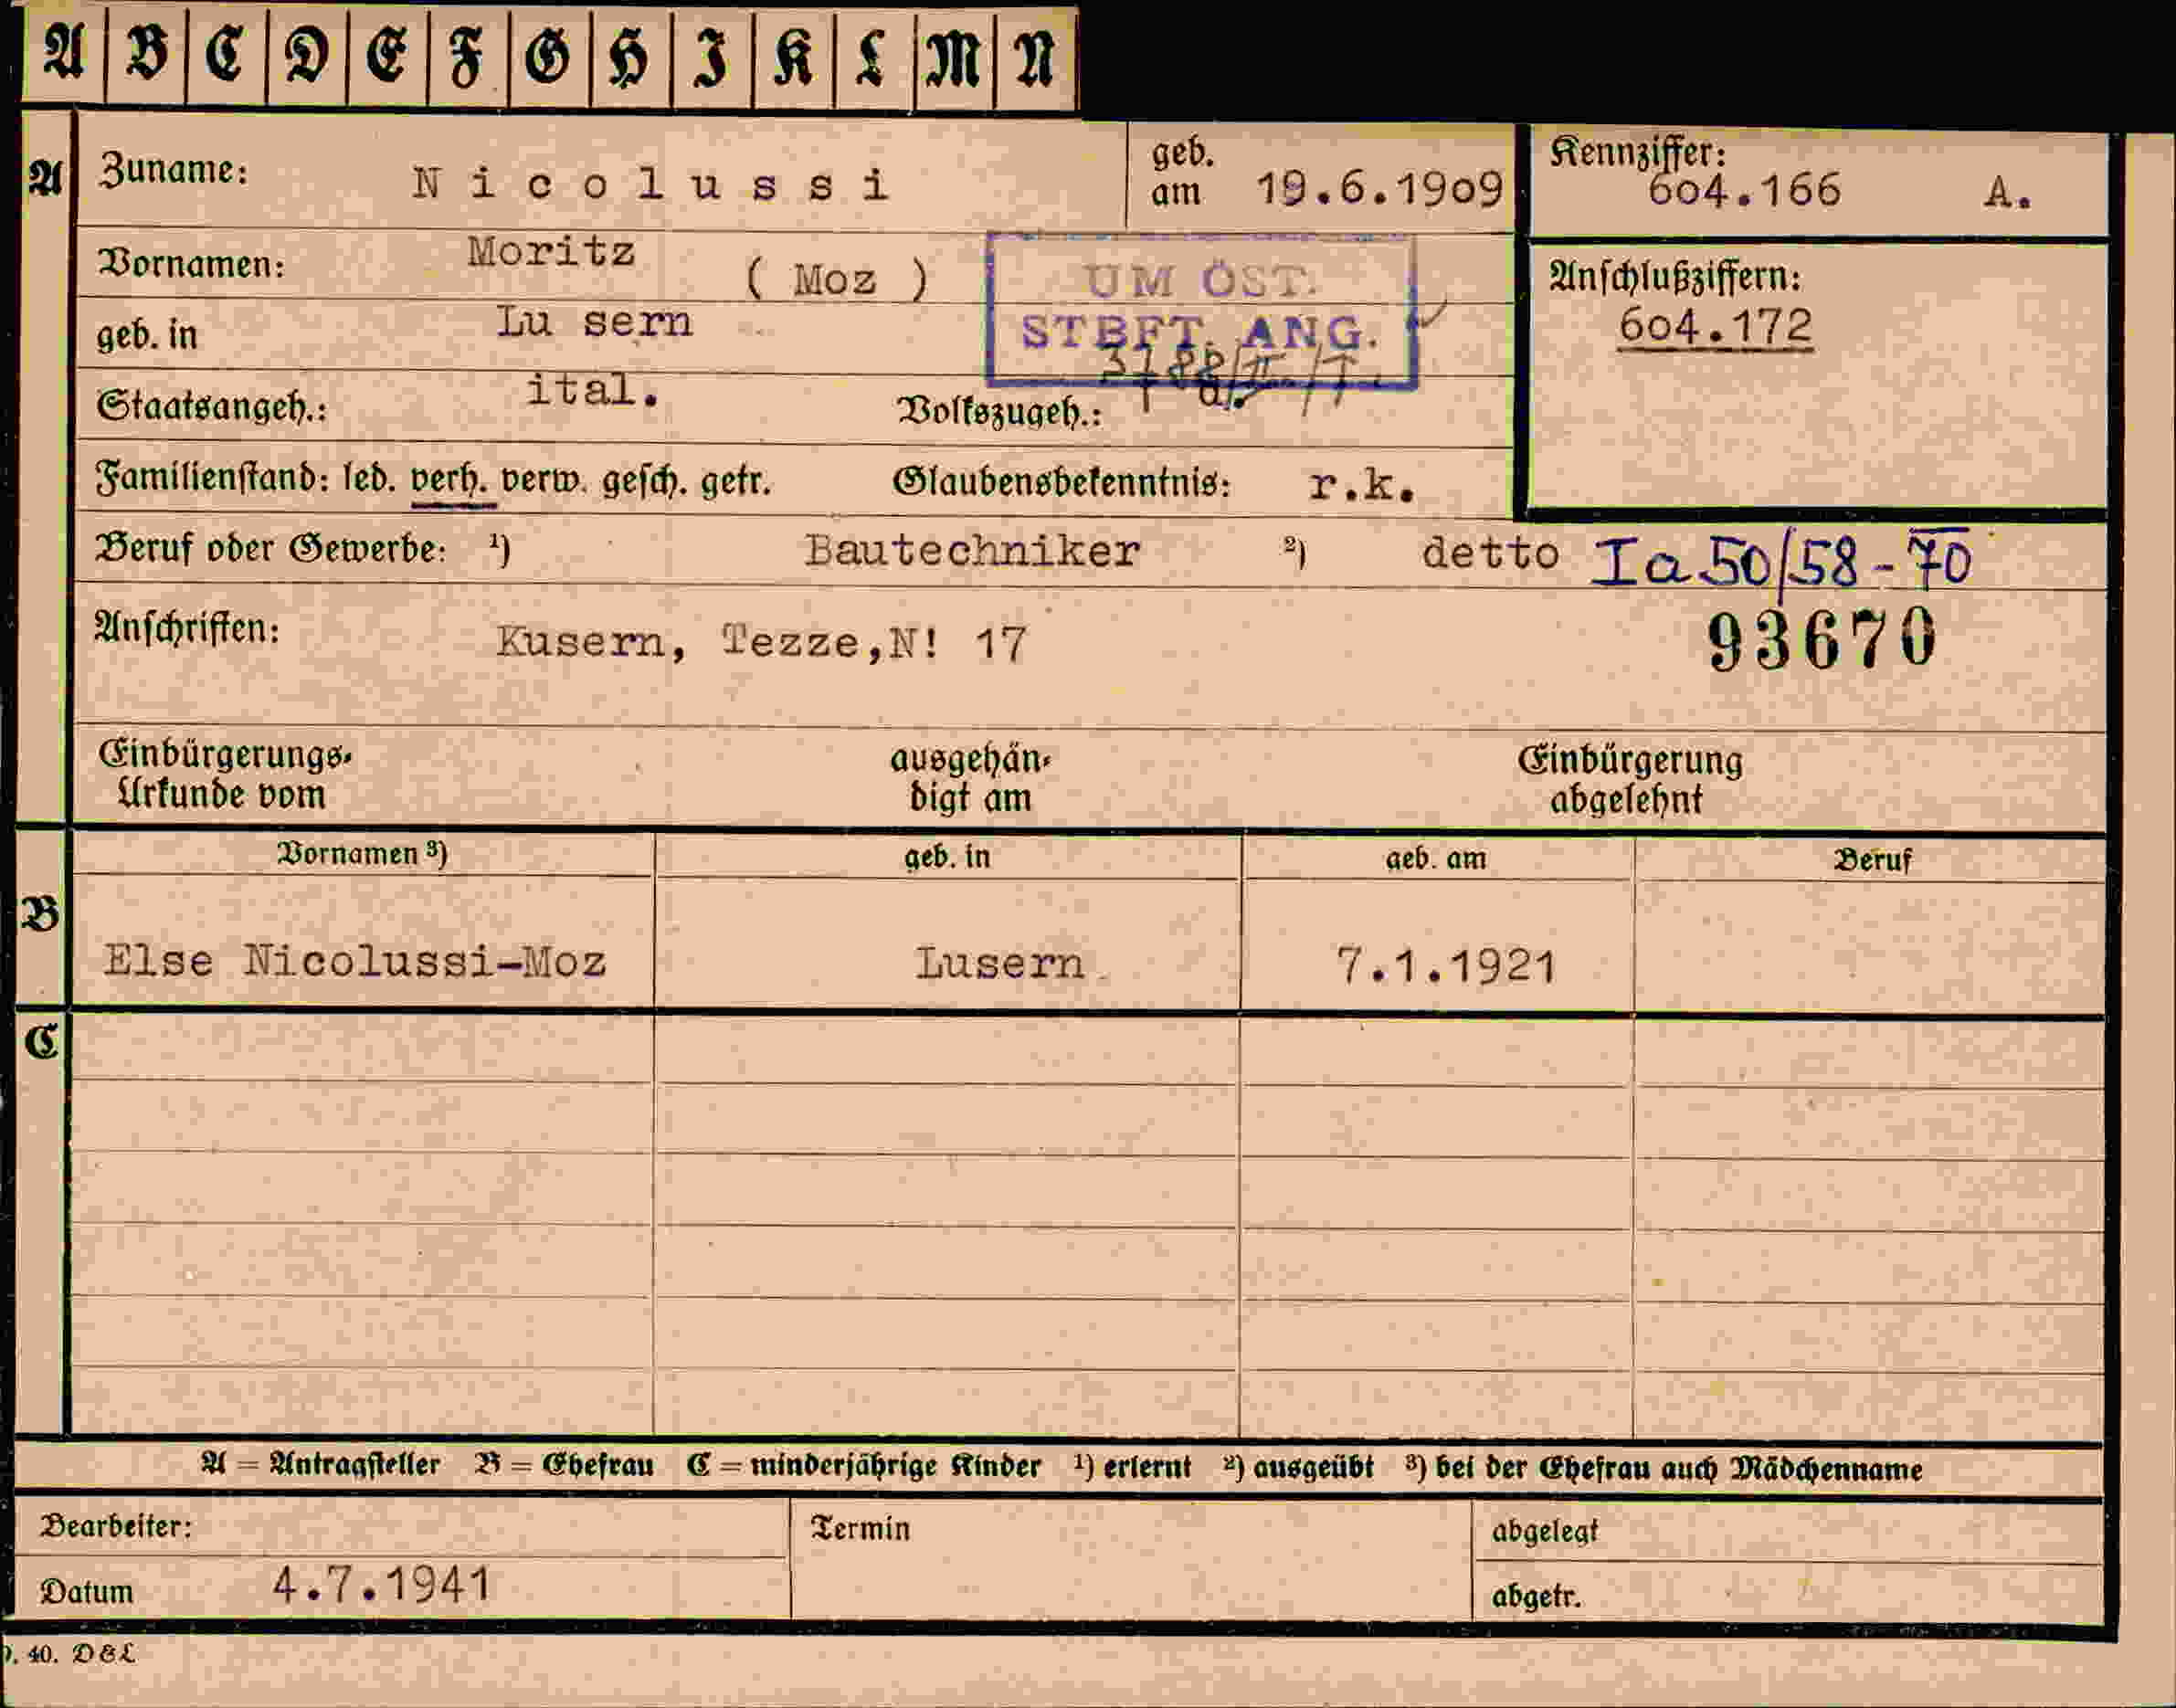 A B C D E F G H I K L M N
A Zuname: Nicolussi geb. am 19.6.1909 Kennziffer: 604.166 A.
Vornamen: Moritz ( Moz ) UM ÖST. Anschlußziffern:
geb. in Lu sern STBFT. ANG. 604.172
Staatsangeh.: ital. Volkszugeh.:
Familienstand: led. verh. verw. gesch. getr. Glaubensbekenntnis: r.k.
Beruf oder Gewerbe: ¹) Bautechniker ²) detto Ia 50/58-70
Anschriften: Kusern, Tezze,N! 17 93670
Einbürgerungs- ausgehän- Einbürgerung
Urkunde vom digt am abgelehnt
Vornamen ³) geb. in geb. am Beruf
B Else Nicolussi-Moz Lusern 7.1.1921
C
A = Antragsteller B = Ehefrau C = minderjährige Kinder ¹) erlernt ²) ausgeübt ³) bei der Ehefrau auch Mädchenname
Bearbeiter: Termin abgelegt
Datum 4.7.1941 abgetr.
40. D&L